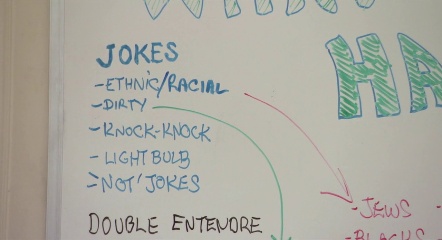 JOKES
-ETHNIC/RACIAL
-DIRTY
-KNOCK-KNOCK
-LIGHTBULB
-"NOT" JOKES
DOUBLE ENTENDRE
HA
-JEWS
-BLACKS